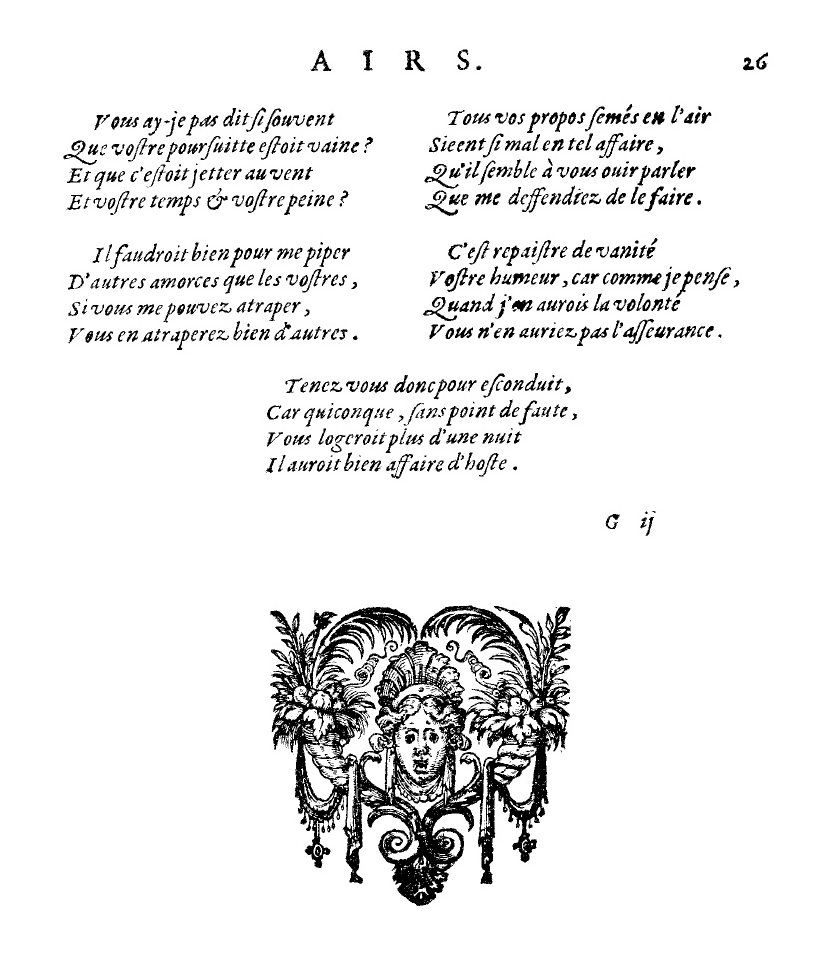 AIRS.
26
Vous ay-je pas dit si souvent
Que vostre poursuitte estoit vaine ?
Et que c'estoit jetter au vent
Et vostre temps & vostre peine ?
Il faudroit bien pour me piper
D'autres amorces que les vostres ,
Si vous me pouvez atraper ,
Vous en atraperez bien d'autres .
Tous vos propos semés en l'air
Sieent si mal en tel affaire ,
Qu'il semble à vous ouir parler
Que me deffendiez de le faire .
C'est repaistre de vanité
Vostre humeur , car comme je pense ,
Quand j'en aurois la volonté
Vous n'en auriez pas l'asseurance .
Tenez vous donc pour esconduit ,
Car quiconque , sans point de faute ,
Vous logeroit plus d'une nuit
Il auroit bien affaire d'hoste .
G ij